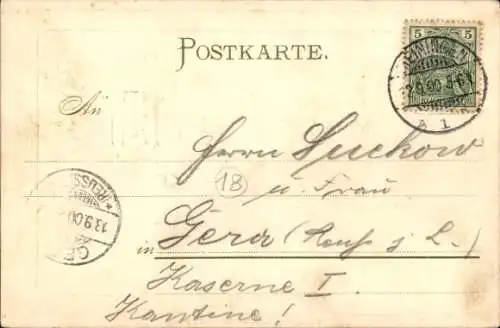 POSTKARTE.
5 5
MEININGEN
12.9.00. 5-6N
A 1
An
Herrn Suckow
18
u. Frau
REUSS
13.9.00
GE
in Gera (Reuß j. L.)
Kaserne I.
Kantine!